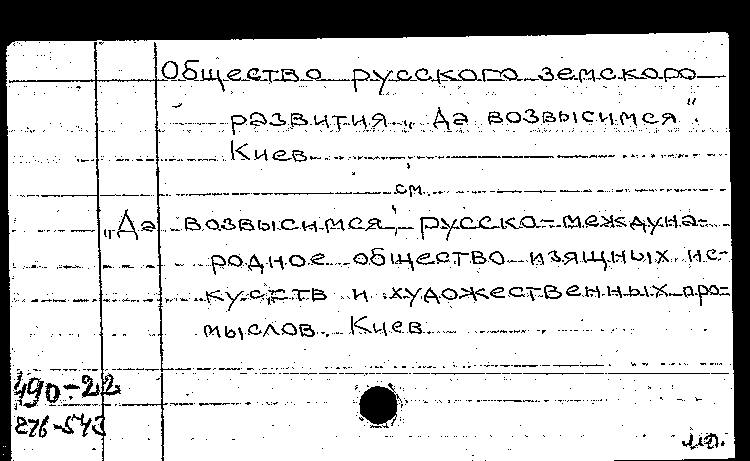 Общество русского земского
развития „Да возвысимся".
Киев
см.
„Да возвысимся", русско-междуна-
родное общество изящных ис-
кусств и художественных про-
мыслов. Киев.
490-22
276-543